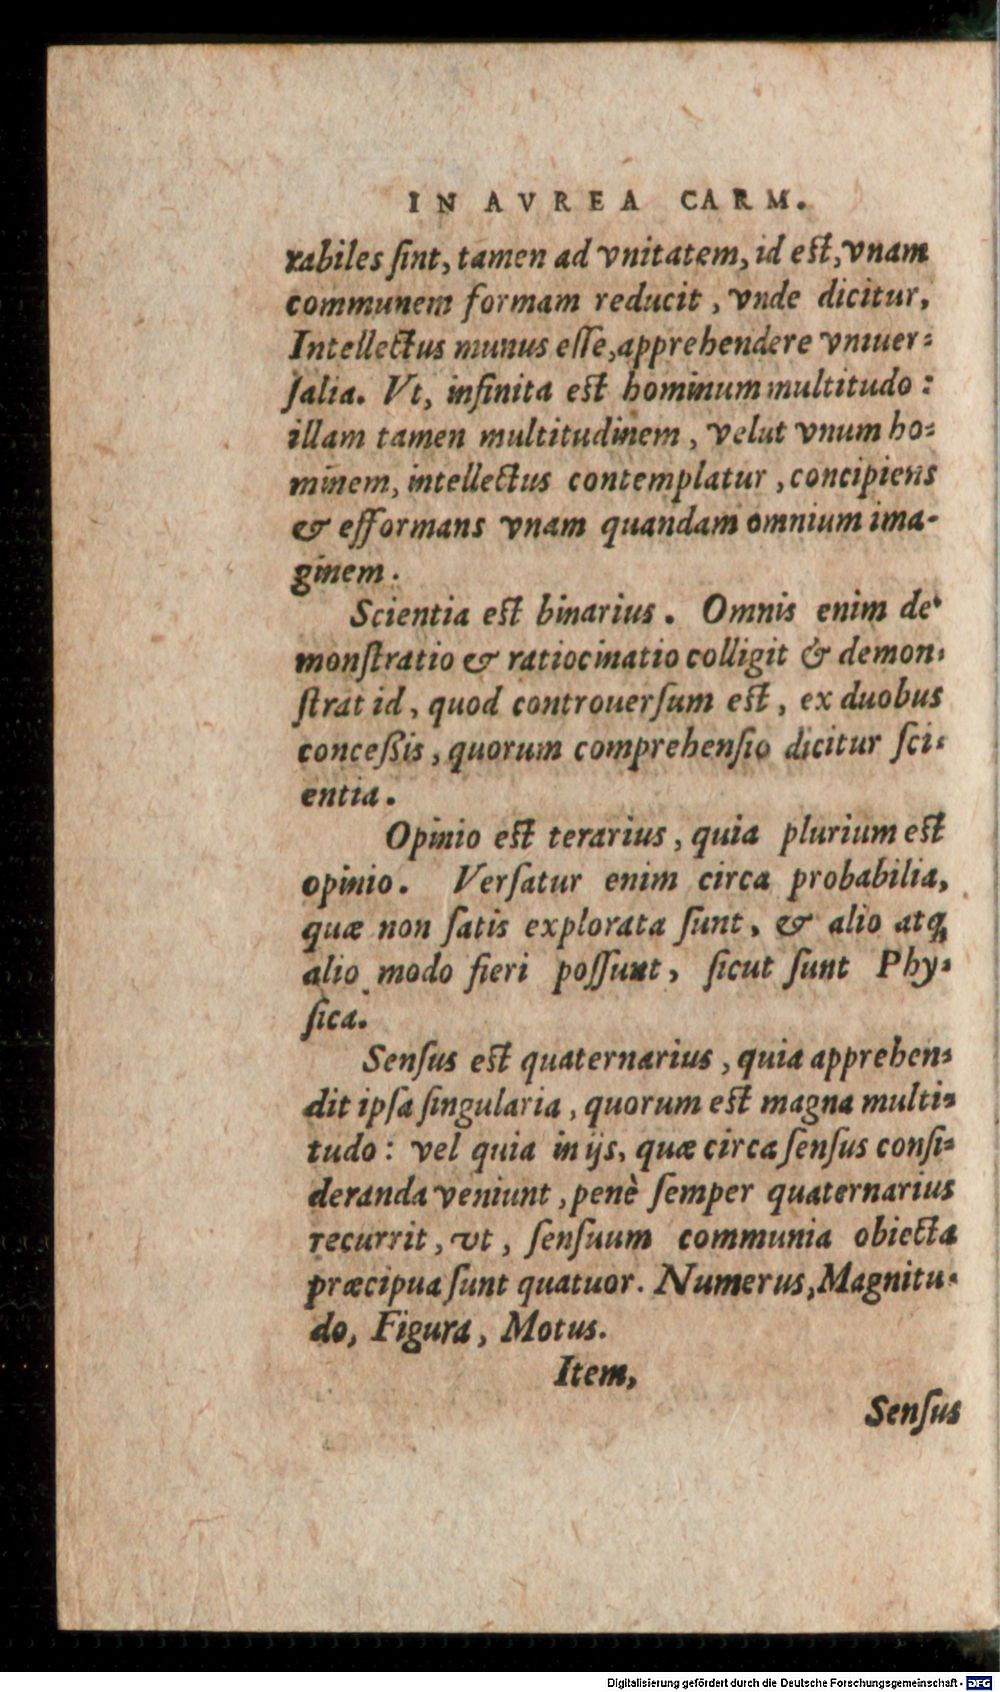 IN AVREA CARM.
rabiles ſint, tamen ad vnitatem, id eſt, vnam
communem formam reducit, vnde dicitur,
Intellectus munus eſſe, apprehendere vniuer-
ſalia. Vt, infinita eſt hominum multitudo:
illam tamen multitudinem, velut vnum ho-
minem, intellectus contemplatur, concipiens
& efformans vnam quandam omnium ima-
ginem.
Scientia eſt binarius. Omnis enim de-
monſtratio & ratiocinatio colligit & demon-
ſtrat id, quod controuerſum eſt, ex duobus
conceßis, quorum comprehenſio dicitur ſci-
entia.
Opinio eſt terarius, quia plurium eſt
opinio. Verſatur enim circa probabilia,
quæ non ſatis explorata ſunt, & alio atq;
alio modo fieri poſſunt, ſicut ſunt Phy-
ſica.
Senſus eſt quaternarius, quia apprehen-
dit ipſa ſingularia, quorum eſt magna multi-
tudo: vel quia in ijs, quæ circa ſenſus conſi-
deranda veniunt, penè ſemper quaternarius
recurrit, vt, ſenſuum communia obiecta
præcipua ſunt quatuor. Numerus, Magnitu-
do, Figura, Motus.
Item,
Senſus
Digitalisierung gefördert durch die Deutsche Forschungsgemeinschaft - DFG